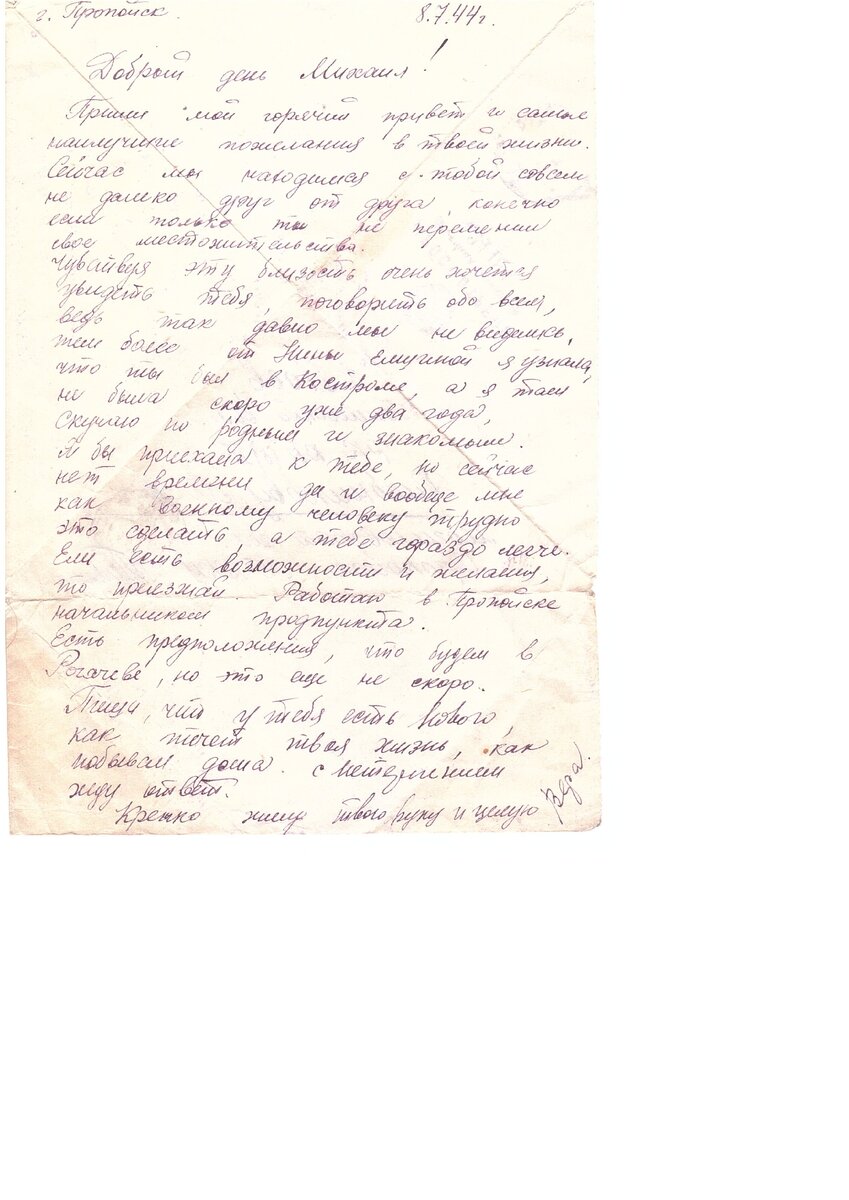 г. Пропойск. 8.7.44г.
Добрый день Михаил!
Прими мой горячий привет и самые
наилучшие пожелания в твоей жизни.
Сейчас мы находимся с тобой совсем
не далеко друг от друга, конечно
если только ты не переменил
свое местожительства.
Чувствуя эту близость очень хочется
увидеть тебя, поговорить обо всем,
ведь так давно мы не виделись,
тем более от Нины я узнала,
что ты был в Костроме, а я там
не была скоро уже два года,
Скучаю по родным и знакомым.
Я бы приехала к тебе, но сейчас
нет времени да и вообще мне
как военному человеку трудно
это сделать, а тебе гораздо легче.
Если есть возможности и желания,
то приезжай. Работаю в Пропойске
начальником продпункта.
Есть предположения, что будем в
Рогачеве, но это еще не скоро.
Пиши, что у тебя есть нового,
как течет твоя жизнь, как
побывал дома. с нетерпением
жду ответ.
Крепко жму твою руку и целую
Вера.